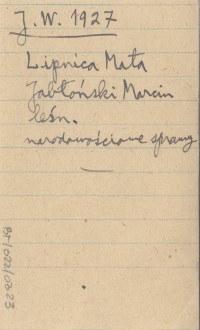 J. W. 1927
Lipnica Mała
Jabłoński Marcin
leśn.
narodowościowe sprawy